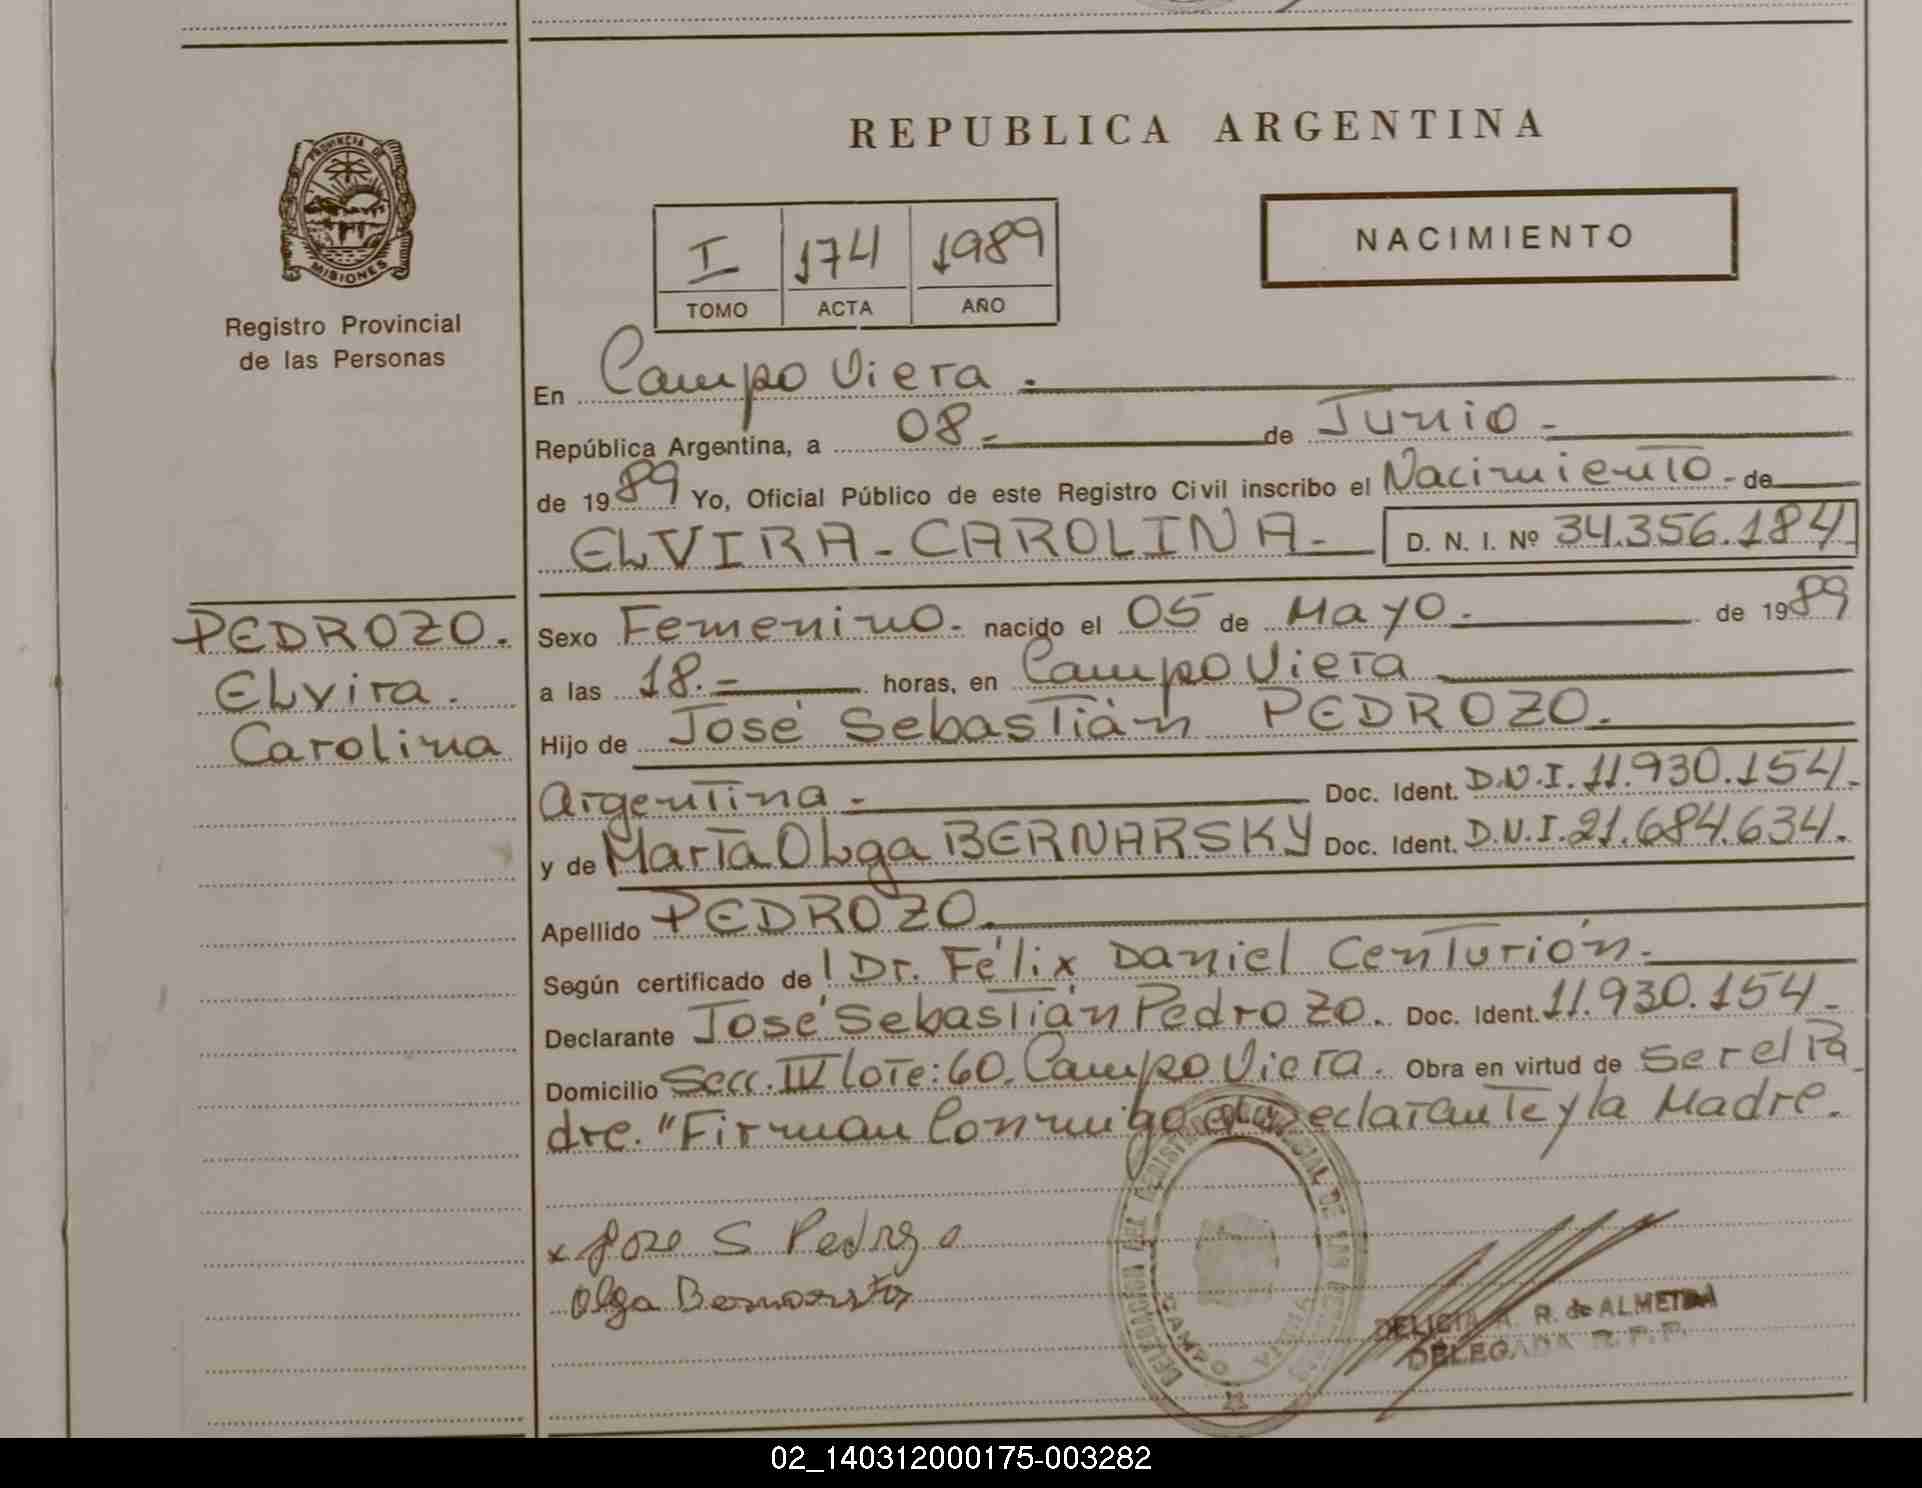 REPUBLICA ARGENTINA
PROVINCIA DE
MISIONES
Registro Provincial
de las Personas
I 174 1989
TOMO ACTA AÑO
NACIMIENTO
En Campo Viera.
República Argentina, a 08 - de Junio -
de 1989 Yo, Oficial Público de este Registro Civil inscribo el Nacimiento - de
ELVIRA - CAROLINA - D. N. I. Nº 34.356.184
PEDROZO.
Elvira.
Carolina
Sexo Femenino. - nacido el 05 de Mayo. de 1989
a las 18. - horas, en Campo Viera
Hijo de José Sebastián PEDROZO.
Argentina - Doc. Ident. D.N.I. 11.930.154 -
y de María Olga BERNARSKY Doc. Ident. D.N.I. 21.684.634.
Apellido PEDROZO.
Según certificado de Dr. Félix Daniel Centurión. -
Declarante José Sebastián Pedrozo. Doc. Ident. 11.930.154 -
Domicilio Secc. IV lote: 60. Campo Viera. Obra en virtud de ser el Pa
dre. "Firman Conmigo el Declarante y la Madre.
x Jose S Pedrozo
Olga Bernarsky
REGISTRO PROVINCIAL DE LAS
CAMPO VIERA
DELICIA A. R. de ALMEIDA
DELEGADA R. P. P.
02_140312000175-003282